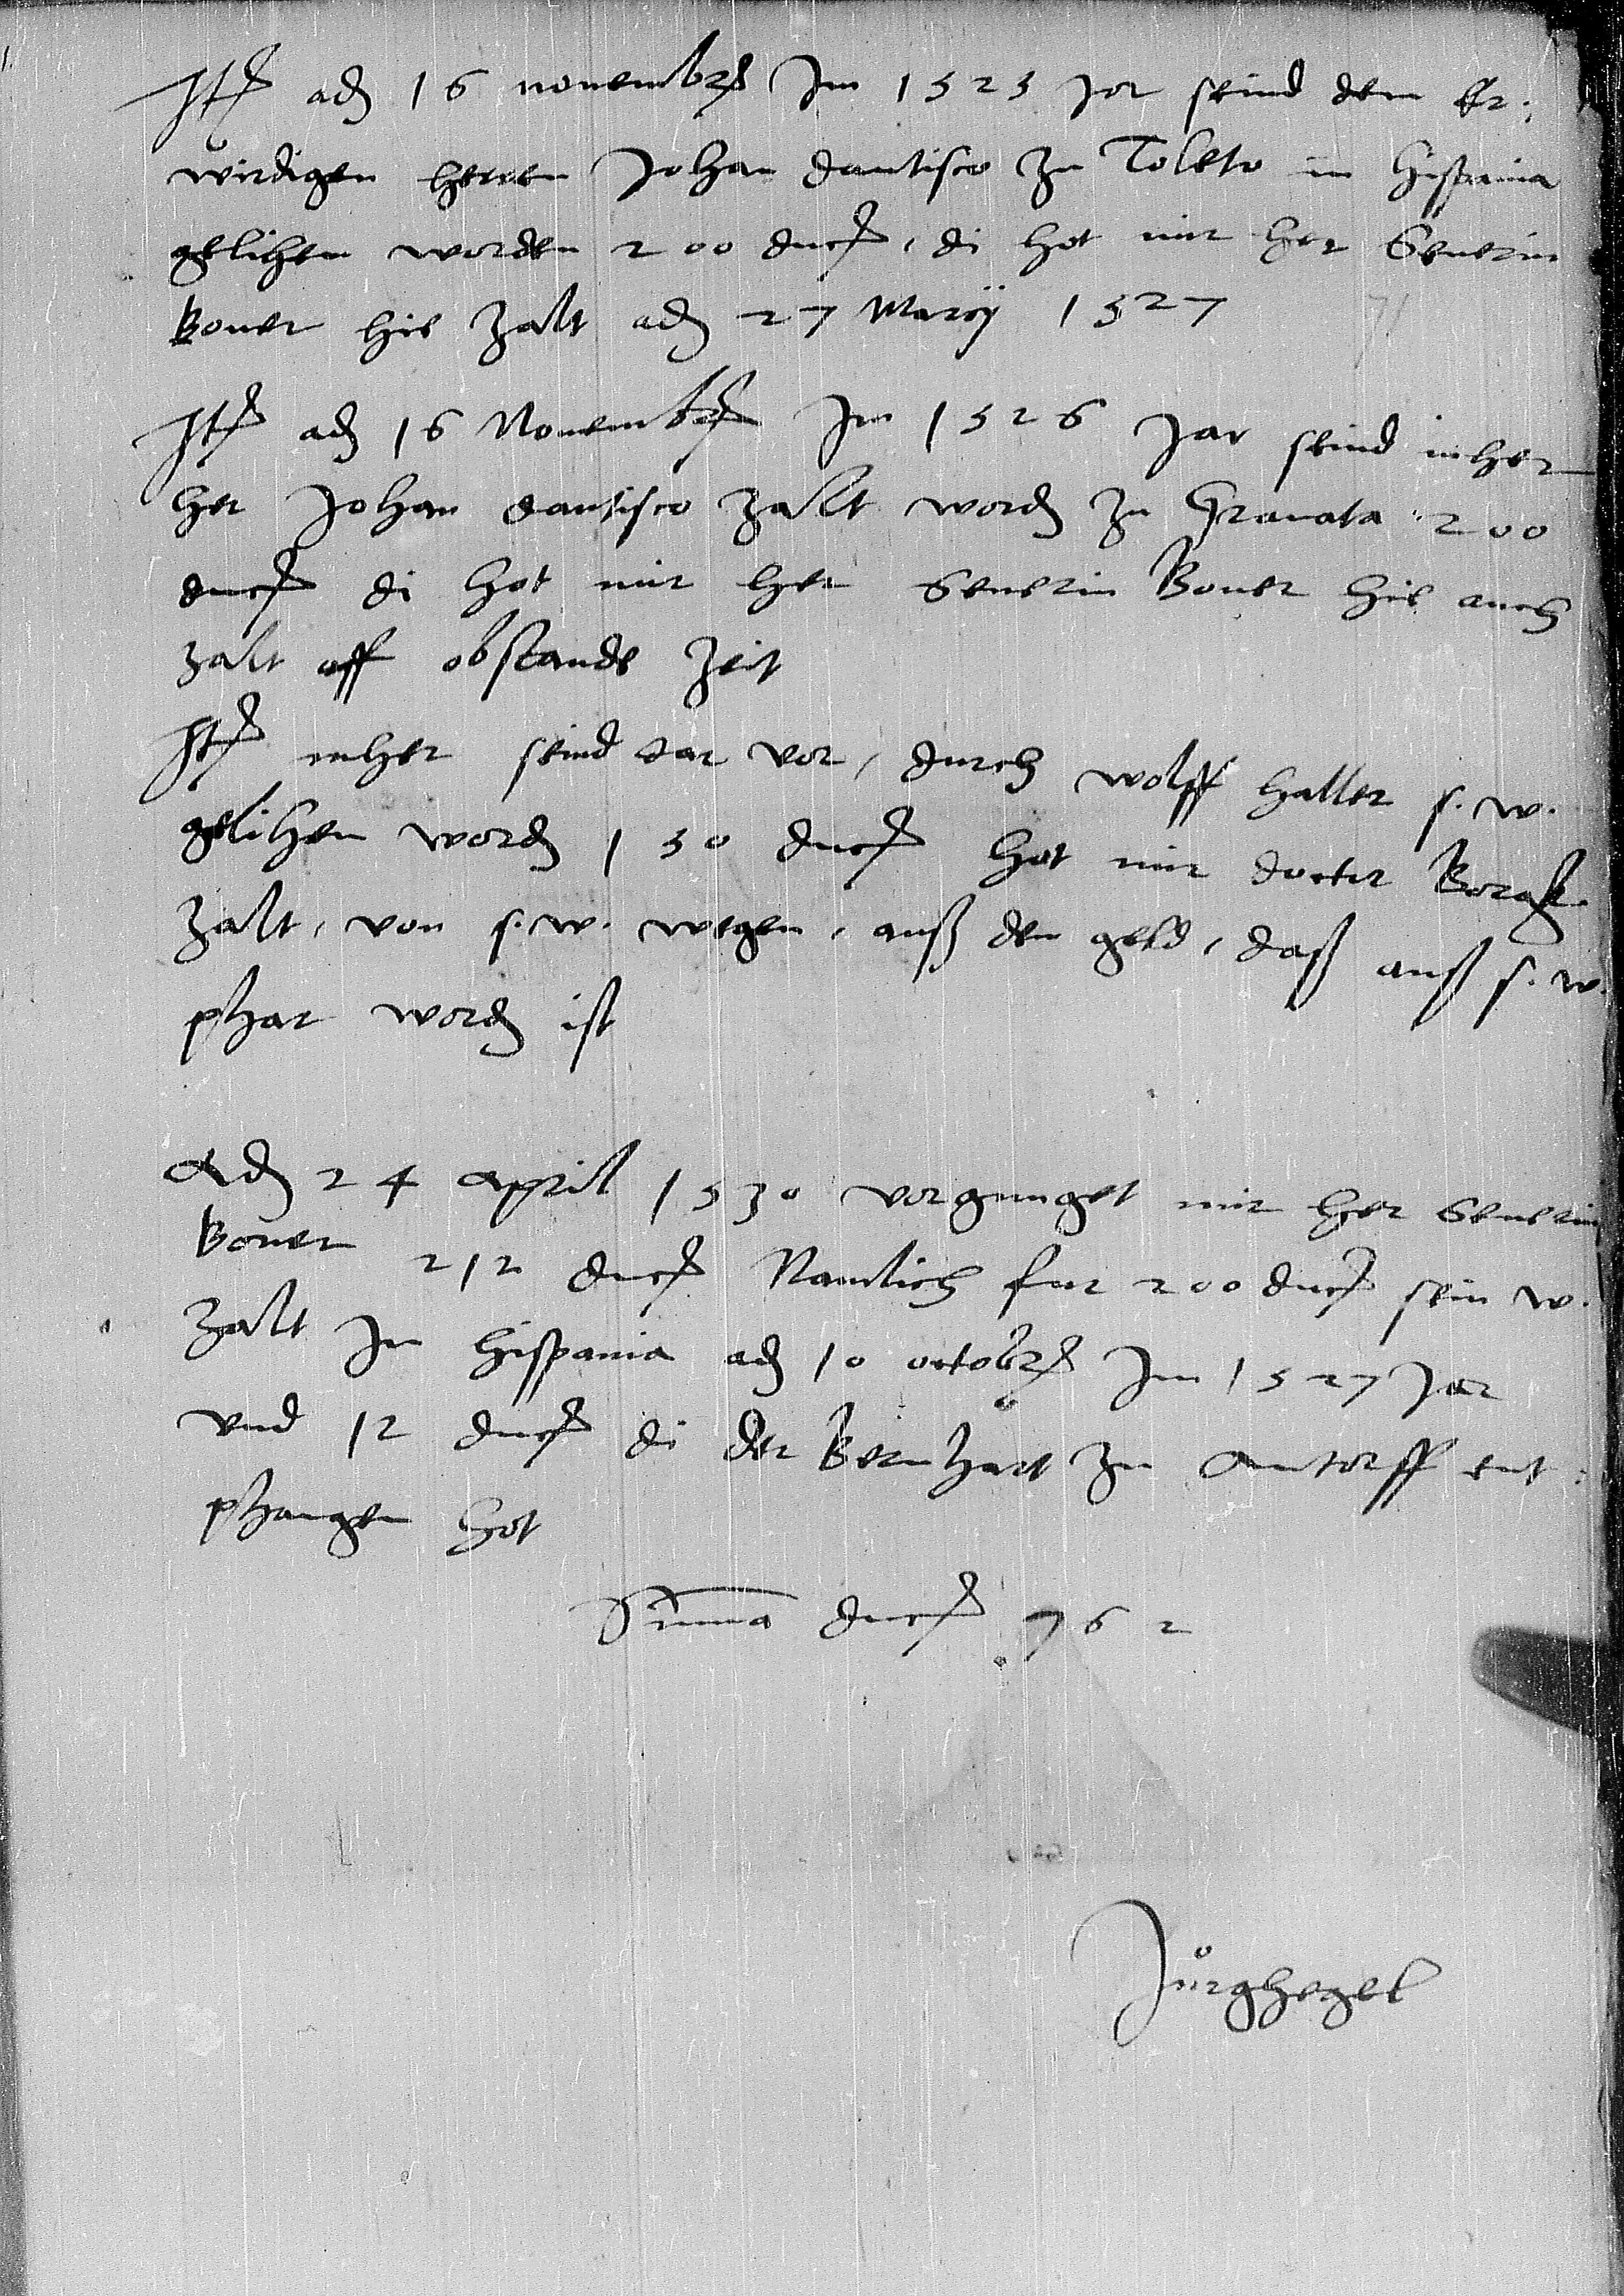 Itē adj 16 novembrē Im 1525 Jor seind dem Er:
wirdigen herren Johan dantisco zu Toleto in hispania
gelihen worden 200 duc, di hot mir her Severin
Boner hie zalt adj 27 Marcÿ 1527
Itē adj 16 Novembrē Im 1526 Jar seind inher
her Johan dantisco zalt word zu Granata 200
duc di hot mir her Severin Boner hie auch
zalt off obstande Zeit
Itē inher seind dar vor, durch wolff haller s. w.
gelihen word 150 duc hot mir doctor
zalt, von s. w. wegen, auß dem geld, daß auß s. w.
phar word ist
Adj 24 April 1530 vorgnuget mir her Severin
Boner 212 duc Namlich fur 200 duc sein w.
zalt In hispania adj 10 octobrē Im 1527 Jar
und 12 duc di der Bernhart zu Antorff ent:
phangen hot
Suma duc 762
Jůrg hegel